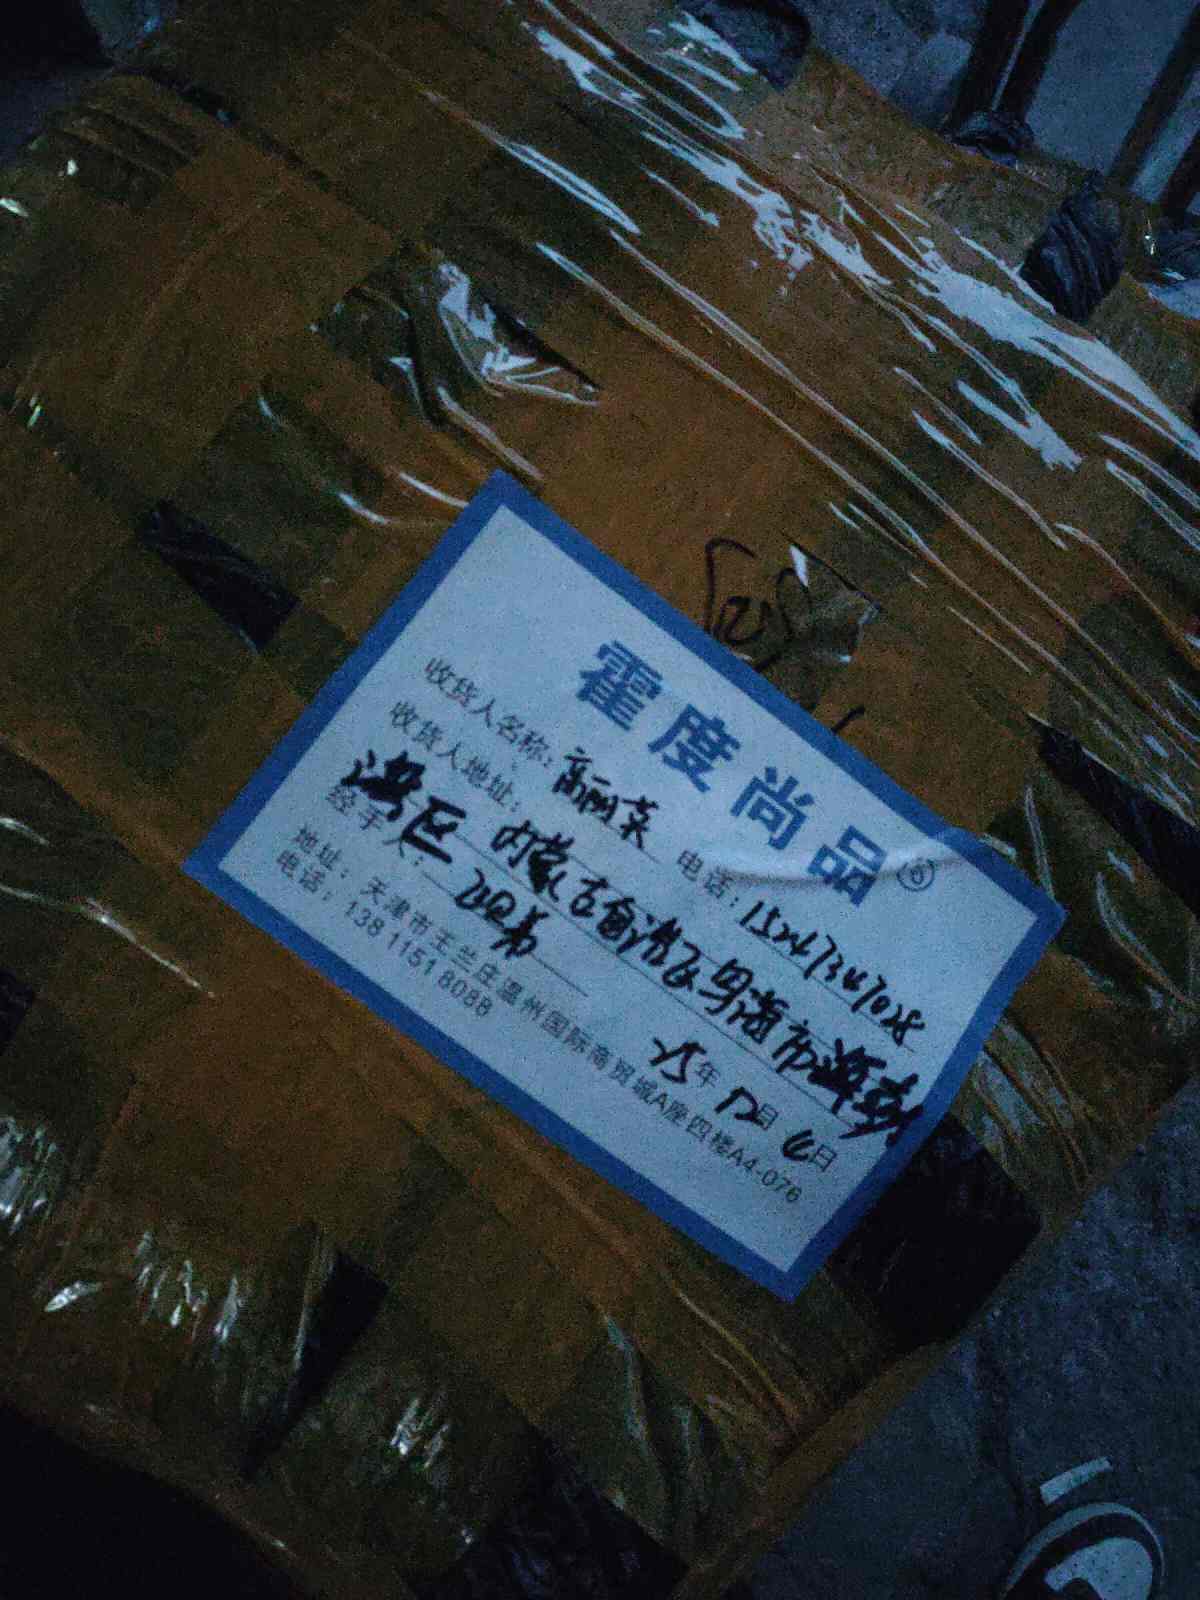 霍度尚品®
收货人名称：高丽英 电话：15247347028
收货人地址：内蒙古自治区乌海市海勃
湾区
经手人： 15年12月6日
地址：天津市王兰庄温州国际商贸城A座四楼A4-076
电话：138 1151 8088